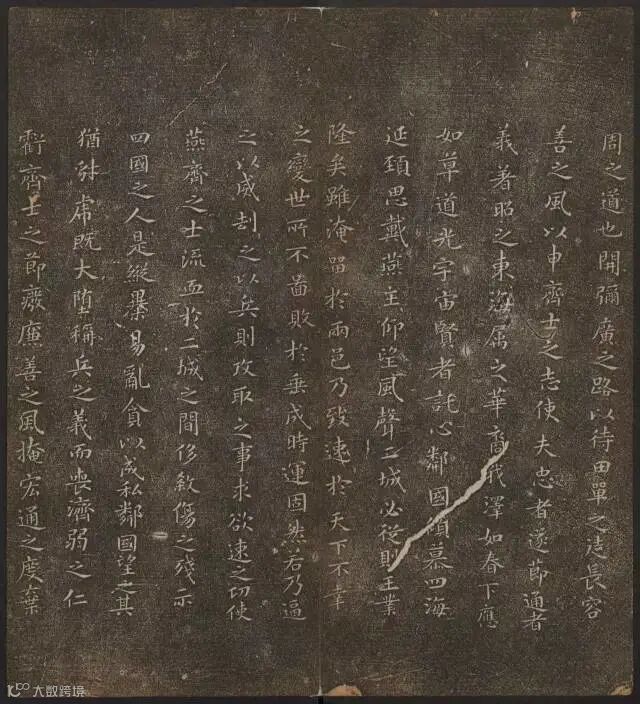 周之道也開彌廣之路以待田單之徒長容
善之風以申齊士之志使夫忠者遂節通者
義著昭之東海属之華裔我澤如春下應
如草道光宇宙賢者託心鄰國傾慕四海
延頸思戴燕主仰望風聲二城必從則王業
隆矣雖淹留於兩邑乃致速於天下不幸
之變世所不圖敗於垂成時運固然若乃逼
之以威刦之以兵則攻取之事求欲速之功使
燕齊之士流血於二城之間侈殺傷之殘示
四國之人是縱暴易亂貪以成私鄰國望之其
猶豺虎既大墮稱兵之義而喪濟弱之仁
虧齊士之節廢廉善之風掩宏通之度棄
大数跨境